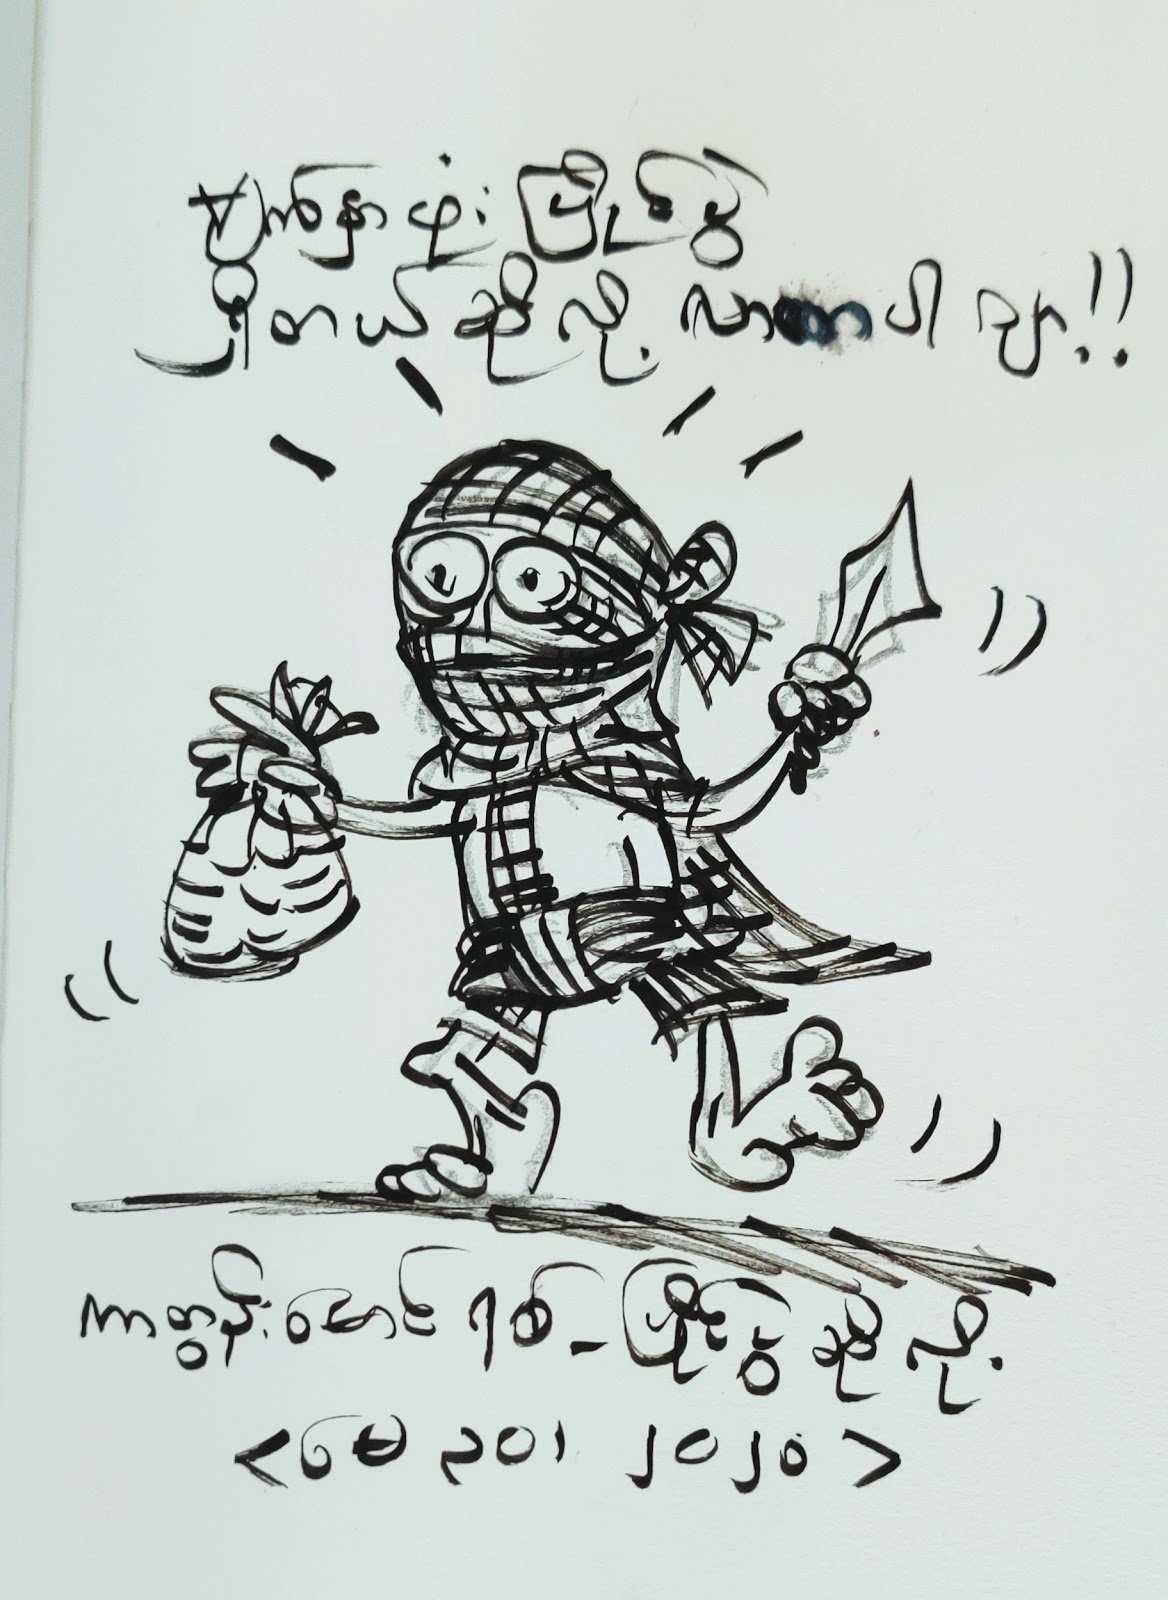 မျက်နှာဖုံး ပြိုင်ပွဲ
ရှိတယ်ဆိုလို့ လာတာပါ ဗျာ!!
ကာတွန်းမောင်ရစ်_ပြိုင်ပွဲဆိုလို့
<မေ ၃၀၊ ၂၀၂၀>